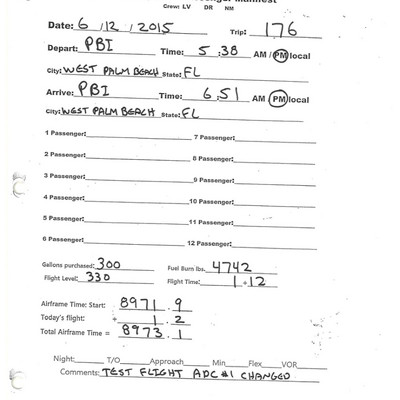 Crew: LV DR NM
Date: 6/12/2015 Trip: 176
Depart: PBI Time: 5:38 AM / PM local
City: WEST PALM BEACH State: FL
Arrive: PBI Time: 6:51 AM PM local
City: WEST PALM BEACH State: FL
1 Passenger: 7 Passenger:
2 Passenger: 8 Passenger:
3 Passenger: 9 Passenger:
4 Passenger: 10 Passenger:
5 Passenger: 11 Passenger:
6 Passenger: 12 Passenger:
Gallons purchased: 300 Fuel Burn lbs. 4742
Flight Level: 330 Flight Time: 1+12
Airframe Time: Start: 8971.9
Today's flight: + 1.2
Total Airframe Time = 8973.1
Night: T/O Approach Min Flex VOR
Comments: TEST FLIGHT ADC #1 CHANGED